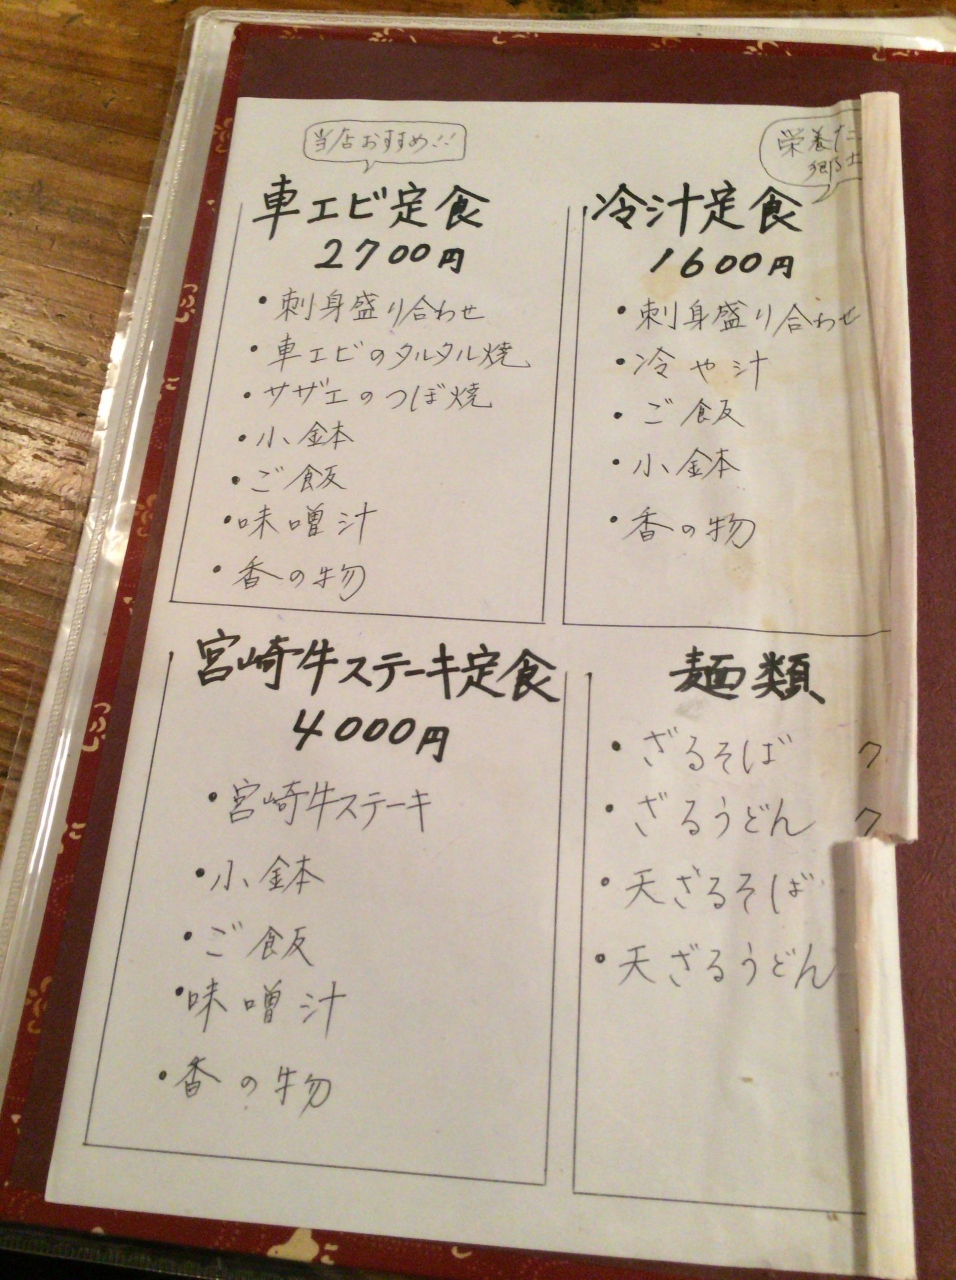 当店おすすめ!!
車エビ定食
2700円
・刺身盛り合わせ
・車エビのタルタル焼
・サザエのつぼ焼
・小鉢
・ご飯
・味噌汁
・香の物
栄養た
郷土
冷汁定食
1600円
・刺身盛り合わせ
・冷や汁
・ご飯
・小鉢
・香の物
宮崎牛ステーキ定食
4000円
・宮崎牛ステーキ
・小鉢
・ご飯
・味噌汁
・香の物
麺類
・ざるそば 7
・ざるうどん 7
・天ざるそば
・天ざるうどん